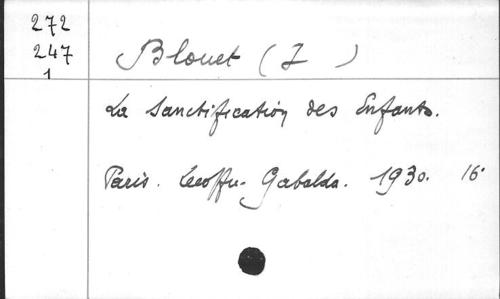 272
247
1
Blouet (J )
La Sanctification des Enfants.
Paris. Lecoffre-Gabalda. 1930. 16°